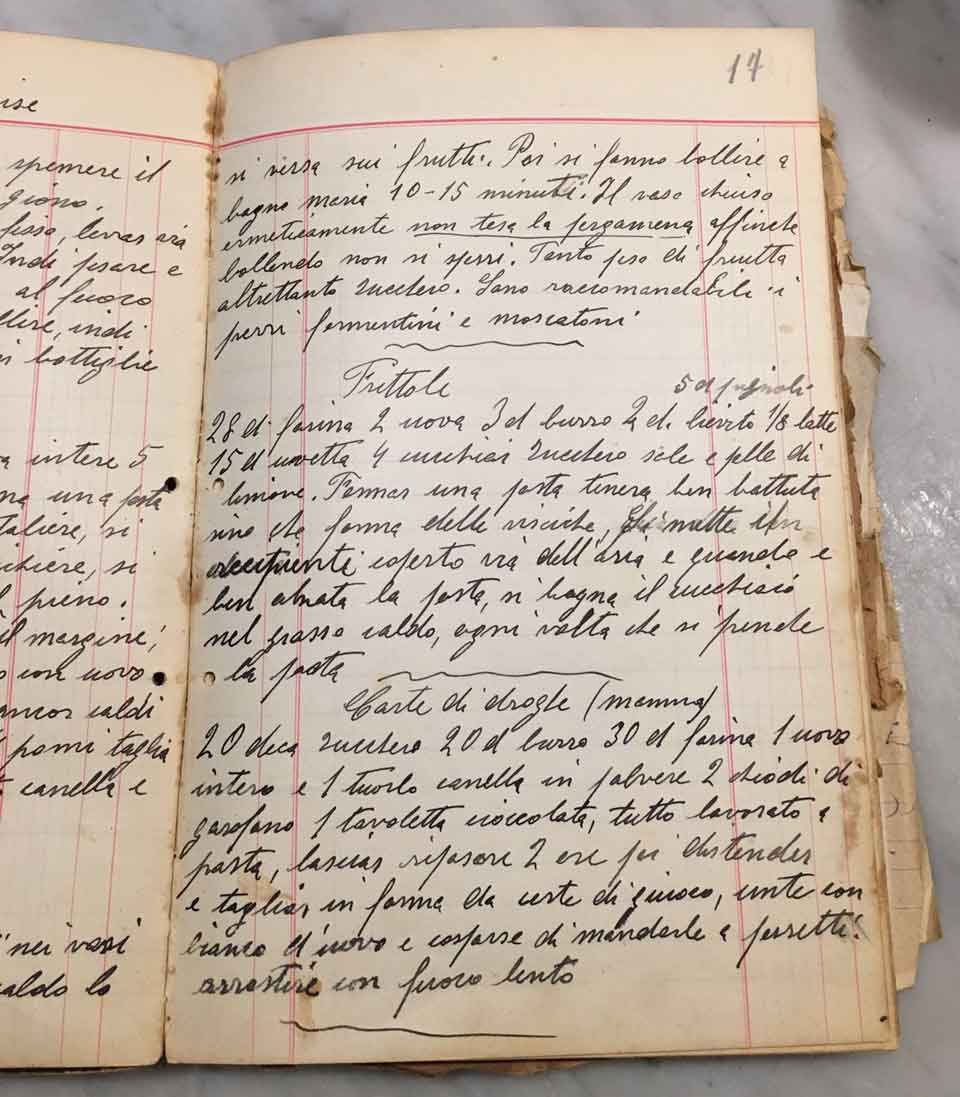 ise
spemere il
giono.
fisso, levras via
Indi pesare e
al fuoco
llire, indi
bottiglie
a intere 5
na una pasta
taliere, si
chiere, si
pieno.
il margine,
con uovo
ancor caldi
pomi taglia
canella e
nei vasi
caldo lo
17
si versa sui frutti. Poi si fanno bollire a
bagno maria 10-15 minuti. Il vaso chiuso
ermeticamente non tesa la pergamena affinche
bollendo non si sperri. Tanto peso di frutta
altrettanto zucchero. Sono raccomandabili i
perri formentini e moscatoni
Frittole
5 d pignoli
28 d. farina 2 uova 3 d burro 2 d. lievito 1/8 latte
15 d uvetta 4 cucchiai zucchero sale e pelle di
limone. Formar una pasta tenera ben battuta
uno che forma delle visciche, si mette in
recipienti coperto via dell'aria e quando e
ben alzata la pasta, si bagna il cucchiaio
nel grasso caldo, ogni volta che si prende
la pasta
Carte di droghe (mamma)
20 deca zucchero 20 d burro 30 d farina 1 uovo
intero e 1 tuorlo canella in polvere 2 chiodi di
garofano 1 tavoletta cioccolata, tutto lavorato a
pasta, lascias riposare 2 ore poi distender
e tagliar in forma da carte di giuoco, unte con
bianco d'uovo e cosparse di mandorle a fersetti.
arrostire con fuoco lento